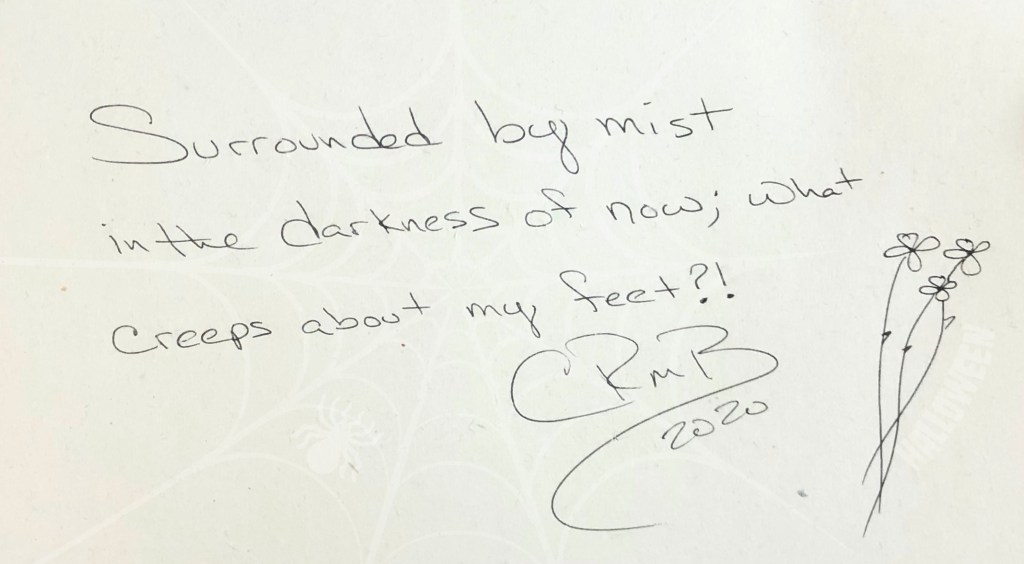 Surrounded by mist
in the darkness of now; what
creeps about my feet?!
CRMB
2020
HALLOWEEN